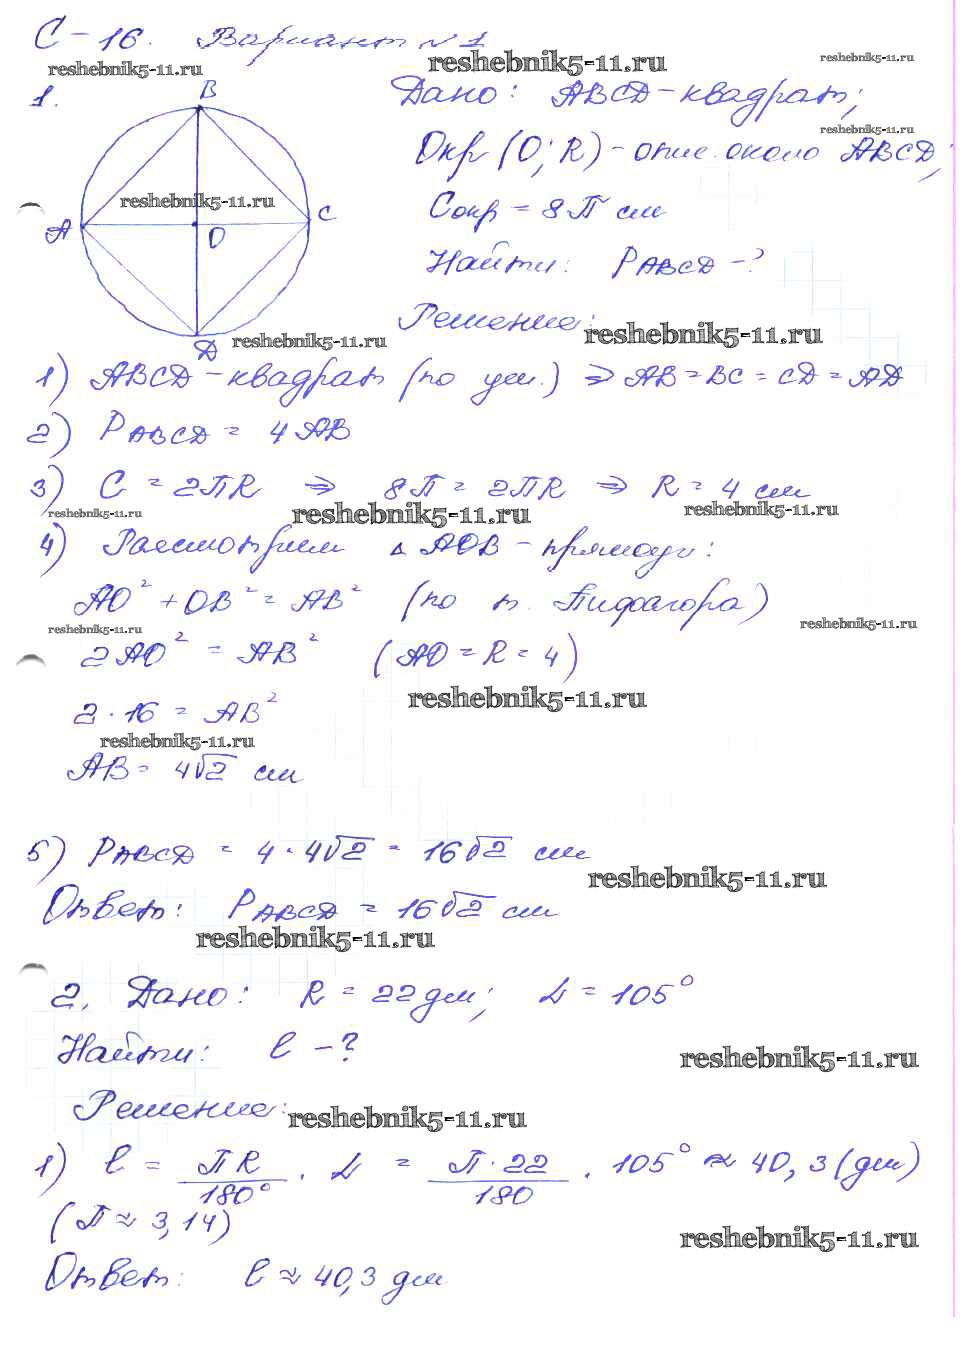 С-16. Вариант №1
reshebnik5-11.ru reshebnik5-11.ru reshebnik5-11.ru
1. B
Дано: ABCD-квадрат;
reshebnik5-11.ru
Окр (O; R) - опис. около ABCD;
reshebnik5-11.ru
A O C
Cокр = 8П см
Найти: PABCD -?
Решение:
reshebnik5-11.ru
D reshebnik5-11.ru
1) ABCD-квадрат (по усл.) ⇒ AB = BC = CD = AD
2) PABCD = 4AB
3) C = 2ПR ⇒ 8П = 2ПR ⇒ R = 4 см
reshebnik5-11.ru reshebnik5-11.ru reshebnik5-11.ru
4) Рассмотрим Δ AOB - прямоуг:
AO² + OB² = AB² (по т. Пифагора)
reshebnik5-11.ru reshebnik5-11.ru
2AO² = AB² (AO = R = 4)
reshebnik5-11.ru
2·16 = AB²
reshebnik5-11.ru
AB = 4√2 см
5) PABCD = 4·4√2 = 16√2 см
reshebnik5-11.ru
Ответ: PABCD = 16√2 см
reshebnik5-11.ru
2. Дано: R = 22 дм; α = 105°
Найти: l -?
reshebnik5-11.ru
Решение:
reshebnik5-11.ru
1) l = ПR/180° · α = П·22/180 · 105° ≈ 40,3 (дм)
(П ≈ 3,14)
reshebnik5-11.ru
Ответ: l ≈ 40,3 дм